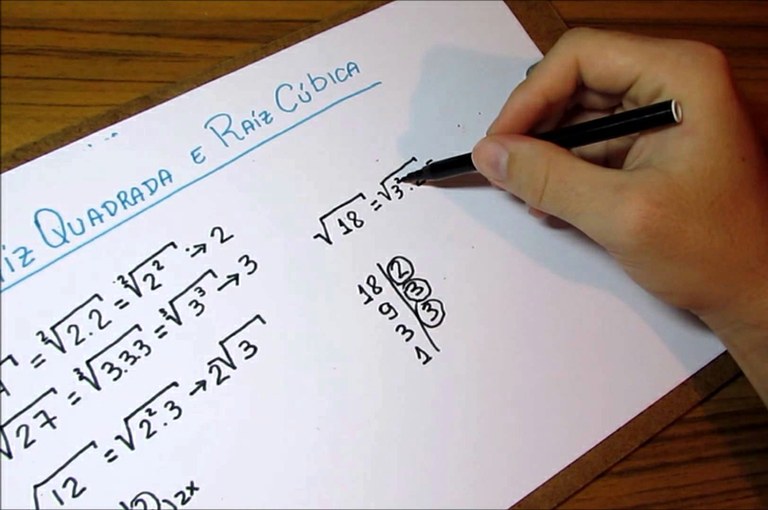 íz QUADRADA E RAÍZ CÚBICA
= ²√2.2 = ²√2² → 2
√27 = ³√3.3.3 = ³√3³ → 3
√12 = √2².3 → 2√3
2x
√18 = √3².2
18 | 2
9 | 3
3 | 3
1 |